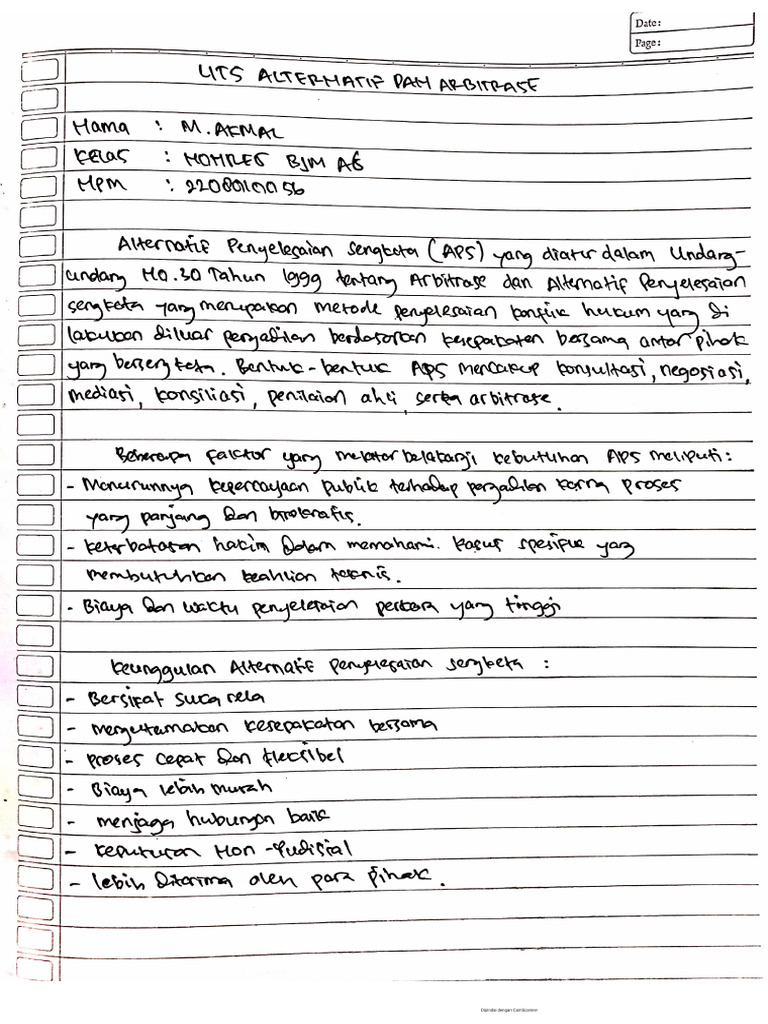 Date:
Page:
UTS ALTERNATIF DAN ARBITRASE
Nama : M. AKMAL
KELAS : NONREG BJM A6
NPM : 2208010056
Alternatif Penyelesaian Sengketa (APS) yang diatur dalam Undang-
undang NO.30 Tahun 1999 tentang Arbitrase dan Alternatif Penyelesaian
sengketa yang merupakan metode penyelesaian konflik hukum yang di
lakukan diluar pengadilan berdasarkan kesepakatan bersama antar pihak
yang bersengketa. Bentuk-bentuk APS mencakup konsultasi, negosiasi,
mediasi, konsiliasi, penilaian ahli, serta arbitrase.
Beberapa faktor yang melatar belakangi kebutuhan APS meliputi:
- Menurunnya kepercayaan publik terhadap pengadilan karna proses
yang panjang dan birokratis.
- keterbatasan hakim dalam memahami. kasus spesifik yang
membutuhkan keahlian teknis.
- Biaya dan waktu penyelesaian perkara yang tinggi
keunggulan Alternatif penyelesaian sengketa :
- Bersifat suca rela
- mengutamakan kesepakatan bersama
- proses cepat dan fleksibel
- Biaya lebih murah
- menjaga hubungan baik
- keputusan Non-Yudisial
- lebih diterima oleh para pihak.
Dipindai dengan CamScanner